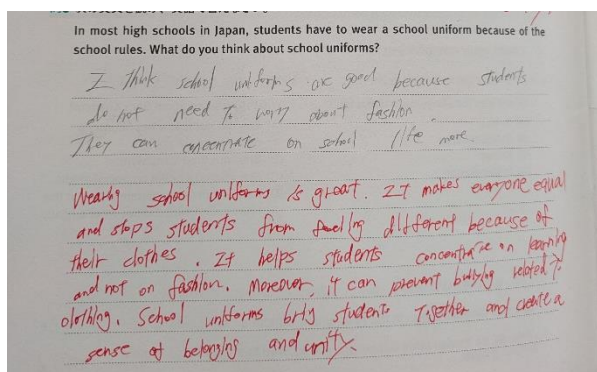 In most high schools in Japan, students have to wear a school uniform because of the
school rules. What do you think about school uniforms?
I think school uniforms are good because students
do not need to worry about fashion.
They can concentrate on school life more.
Wearing school uniforms is great. It makes everyone equal
and stops students from feeling different because of
their clothes. It helps students concentrate on learning
and not on fashion. Moreover, it can prevent bullying related to
clothing. School uniforms bring students together and create a
sense of belonging and unity.